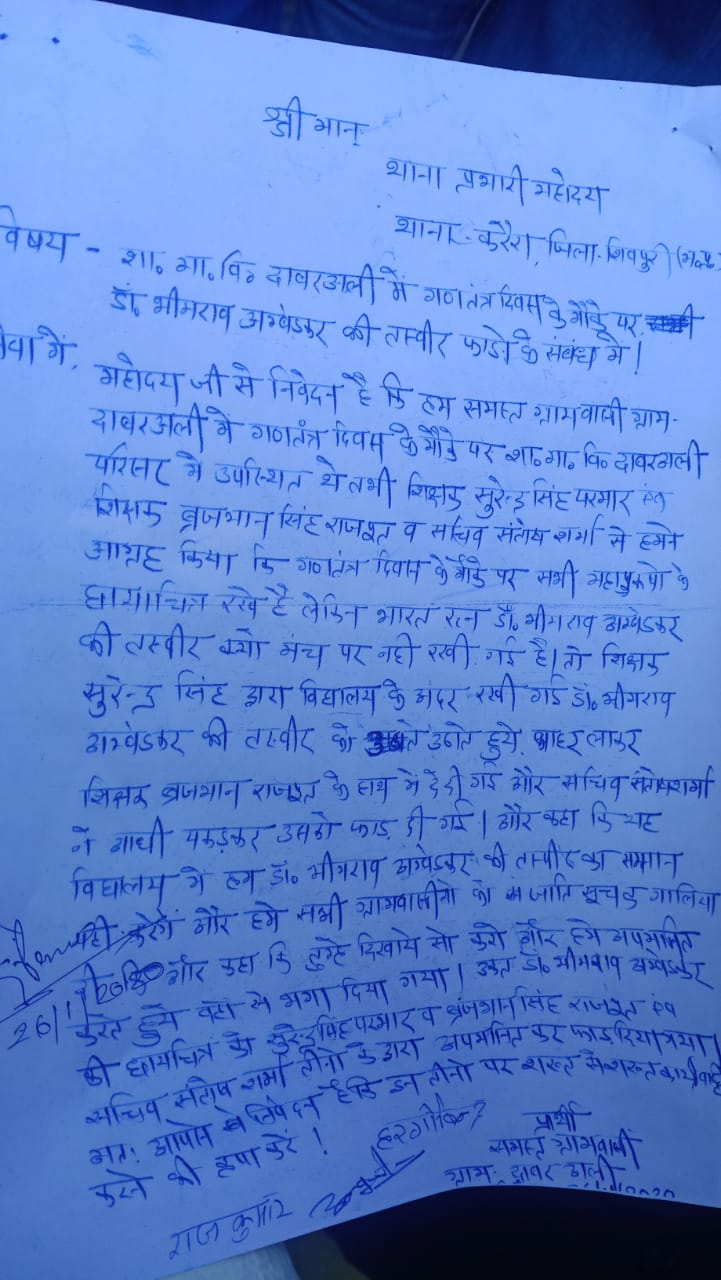 श्रीमान्
थाना प्रभारी महोदय
थाना - करैरा, जिला - शिवपुरी (म.प्र.)
विषय - शा० मा० वि० दावरअली में गणतंत्र दिवस के मौके पर
डॉ० भीमराव अम्बेडकर की तस्वीर फाडो के संबंध में।
सेवा में,
महोदय जी से निवेदन है कि हम समस्त ग्रामवासी ग्राम-
दावरअली में गणतंत्र दिवस के मौके पर शा० मा० वि० दावरअली
परिसर में उपस्थित थे तभी शिक्षक सुरेन्द्र सिंह परमार एंव
शिक्षक ब्रजभान सिंह राजपूत व सचिव संतोष शर्मा से हमने
आग्रह किया कि गणतंत्र दिवस के मौके पर सभी महापुरुषो के
छायाचित्र रखे है लेकिन भारत रत्न डॉ० भीमराव अम्बेडकर
की तस्वीर क्यो मंच पर नही रखी गई है। तो शिक्षक
सुरेन्द्र सिंह द्वारा विद्यालय के अंदर रखी गई डॉ० भीमराव
अम्बेडकर की तस्वीर को उठाते हुये बाहर लाकर
शिक्षक ब्रजभान राजपूत के हाथ में दे दी गई और सचिव संतोष शर्मा
ने आधी पकड़कर उसको फाड़ दी गई। और कहा कि यह
विद्यालय में हम डॉ० भीमराव अम्बेडकर की तस्वीर का सम्मान
नही करेगें और हमे सभी ग्रामवासीयो को जाति सूचक गालिया
दी और कहा कि तुम्हे दिखाये सो करो और हमे अपमानित
करते हुये वहां से भगा दिया गया। उक्त डॉ० भीमराव अम्बेडकर
की छायाचित्र को सुरेन्द्र सिंह परमार व ब्रजभान सिंह राजपूत एंव
सचिव संतोष शर्मा तीनो के द्वारा अपमानित कर फाड दिया गया।
अतः आपसे निवेदन है कि इन तीनो पर शख्त से शख्त कार्यवाही
करने की कृपा करें।
26/1
प्रार्थी
समस्त ग्रामवासी
ग्राम - दावर अली
राजकुमार